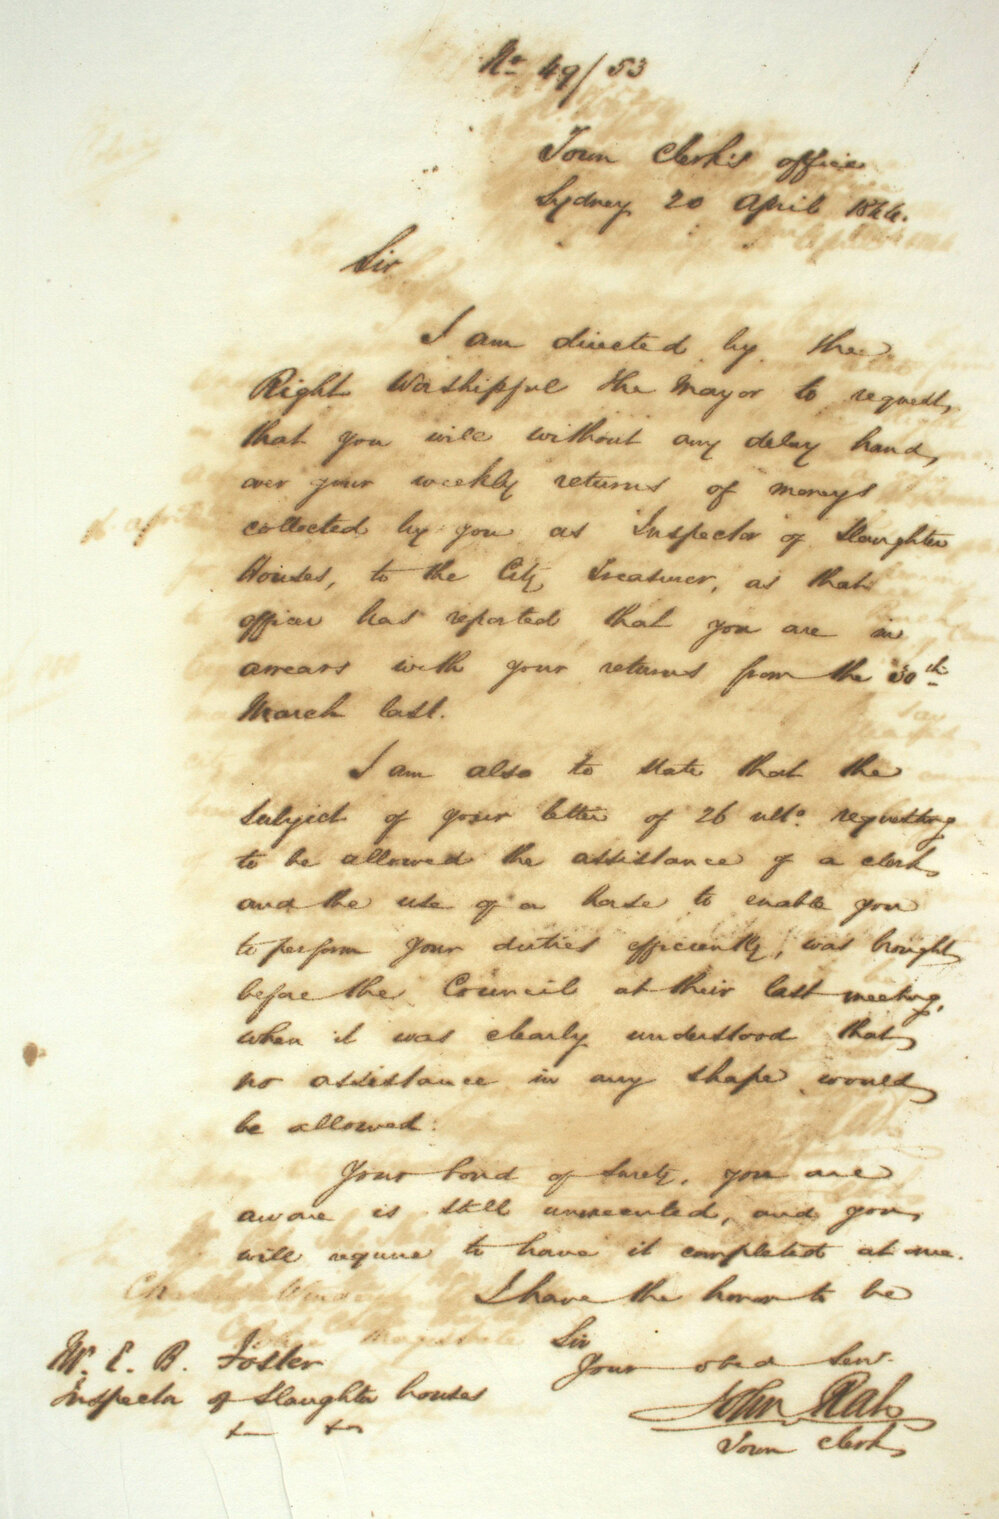 No 49/53
Town Clerk's office
Sydney 20 April 1844.
Sir
I am directed by the
Right Worshipful the Mayor to request
that you will without any delay hand
over your weekly returns of moneys
collected by you as Inspector of Slaughter
Houses, to the City Treasurer, as that
officer has reported that you are in
arrears with your returns from the 30th
March last.
I am also to state that the
subject of your letter of 26 ulto. requesting
to be allowed the assistance of a clerk
and the use of a horse to enable you
to perform your duties efficiently, was brought
before the Council at their last meeting,
when it was clearly understood that
no assistance in any shape would
be allowed.
Your bond of surety, you are
aware is still unexecuted, and you
will require to have it completed at once.
I have the honor to be
Sir
Your obed Serv.
John Rae
Town Clerk
Mr. E. B. Foster
Inspector of Slaughter houses